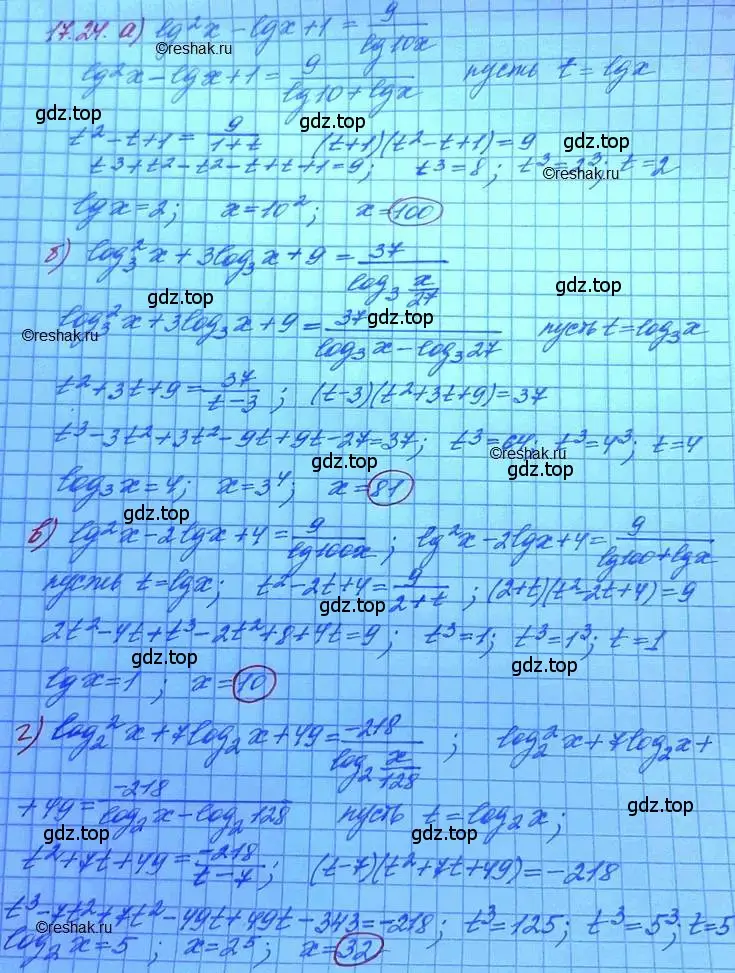 17.24. а) lg²x - lgx + 1 = 9/lg10x
©reshak.ru
lg²x - lgx + 1 = 9/(lg10 + lgx) пусть t = lgx
gdz.top gdz.top
t² - t + 1 = 9/(1+t) (t+1)(t² - t + 1) = 9 gdz.top
t³ + t² - t² - t + t + 1 = 9; t³ = 8; t³ = 2³; t = 2
©reshak.ru
lgx = 2; x = 10²; x = 100
gdz.top gdz.top
б) log₃²x + 3log₃x + 9 = 37/(log₃ x/27)
gdz.top gdz.top gdz.top
log₃²x + 3log₃x + 9 = 37/(log₃x - log₃27) пусть t = log₃x
©reshak.ru
t² + 3t + 9 = 37/(t-3); (t-3)(t² + 3t + 9) = 37
t³ - 3t² + 3t² - 9t + 9t - 27 = 37; t³ = 64; t³ = 4³; t = 4
©reshak.ru
gdz.top gdz.top
log₃x = 4; x = 3⁴; x = 81
gdz.top
в) lg²x - 2lgx + 4 = 9/lg100x; lg²x - 2lgx + 4 = 9/(lg100 + lgx)
пусть t = lgx; t² - 2t + 4 = 9/(2+t); (2+t)(t² - 2t + 4) = 9
gdz.top
2t² - 4t + t³ - 2t² + 8 + 4t = 9; t³ = 1; t³ = 1³; t = 1
gdz.top gdz.top
lgx = 1; x = 10
г) log₂²x + 7log₂x + 49 = -218/(log₂ x/128); log₂²x + 7log₂x +
+ 49 = -218/(log₂x - log₂128) пусть t = log₂x;
gdz.top gdz.top gdz.top
t² + 7t + 49 = -218/(t-7); (t-7)(t² + 7t + 49) = -218
t³ - 7t² + 7t² - 49t + 49t - 343 = -218; t³ = 125; t³ = 5³; t = 5
log₂x = 5; x = 2⁵; x = 32